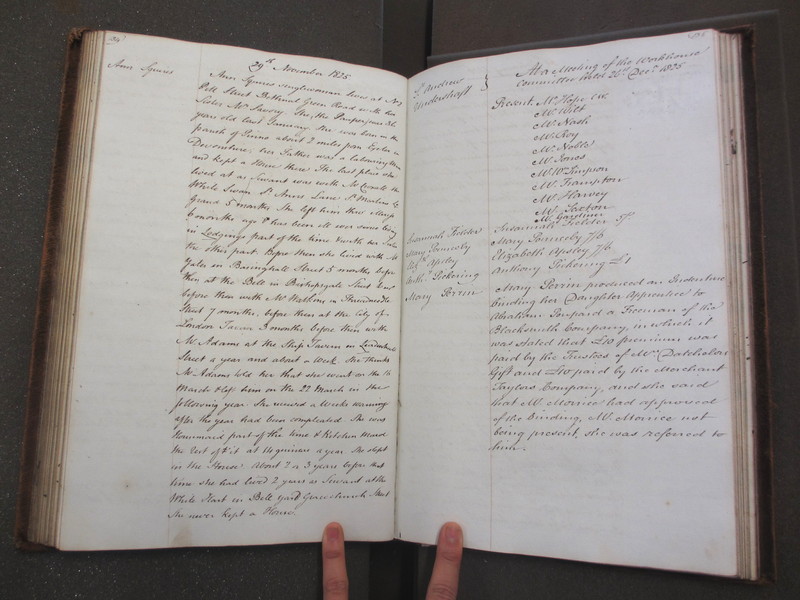 29th November 1825
Ann Squires
Ann Squires singlewoman lives at No
Pott Street Bethnal Green Road with her
Sister Mrs Savory. She, the Pauper, was 36
years old last January. She was born in the
parish of Pinno about 2 miles from Exeter in
Devonshire, her Father was a labouring Man
and kept a House there. The last place she
lived at as Servant was with Mr at the
White Swan St Anns Lane St Martins Le
Grand 5 months. She left him
6 months ago & has been ill ever since living
in Lodgings part of the time with her Sister
the other part. Before then she lived with Mr
Yates in Basinghall Street 5 months before
then at the Bell in Bishopsgate Street
before then with Mr Watkins in Threadneedle
Street 7 months, before then at the City of
London Tavern 3 months before then with
Mr Adams at the Ship Tavern in Leadenhall
Street a year and about a week. She thinks
Mr Adams told her that she went on the 16
March & left him on the 22 March in the
following year. She received a weeks warning
after the year had been completed. She was
Housemaid part of the time & Kitchen Maid
the rest of it at 14 guineas a year. She slept
in the House. About 2 or 3 years before that
time she had lived 2 years as Servant at the
White Hart in Bell Yard Gracechurch Street
She never kept a House.
St Andrew
Undershaft
At a Meeting of the Workhouse
Committee held 26 Decr 1825
Present Mr Hope
Mr Wilt
Mr Nash
Mr Roy
Mr Noble
Mr Jones
Mr Wm Simpson
Mr Frampton
Mr Harvey
Mr Saxton
Mr Gardiner
Susannah Fielder
Susannah Fielder 5/
Mary Ponneby
Mary Ponneby 7/6
Elizth Apsley
Elizabeth Apsley 7/6
Anthy Pickering
Anthony Pickering £1
Mary Perrin
Mary Perrin produced an Indenture
binding her Daughter Apprentice to
Abraham a Freeman of the
Blacksmith Company, in which it
was stated that £10 premium was
paid by the Trustees of Mr
Gift and £10 paid by the Merchant
Taylors Company, and she said
that Mr Morrice had approved
of the binding, Mr Morrice not
being present, she was referred to
him.